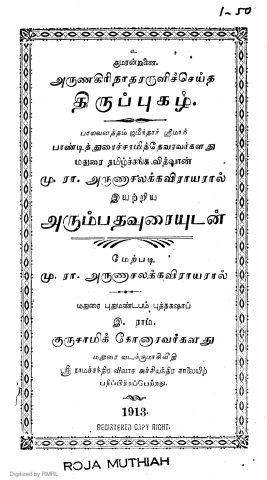 1-50
உ
குமரன்துணை.
அருணகிரிநாதரருளிச்செய்த
திருப்புகழ்.
பாலவனத்தம் ஜமீந்தார் ஸ்ரீமாந்
பாண்டித்துரைச்சாமித்தேவரவர்களது
மதுரை தமிழ்ச்சங்க வித்வான்
மு. ரா. அருணாசலக்கவிராயரால்
இயற்றிய
அரும்பதவுரையுடன்
மேற்படி
மு. ரா. அருணாசலக்கவிராயரால்
மதுரை புதுமண்டபம் புத்தகஷாப்
இ. ராம.
குருசாமிக் கோனாரவர்களது
மதுரை வடக்குமாசிவீதி
ஸ்ரீ ராமச்சந்திர விலாச அச்சியந்திர சாலையிற்
பதிப்பிக்கப்பெற்றது.
1913.
REGISTERED COPY RIGHT.
Digitized by RMRL
ROJA MUTHIAH